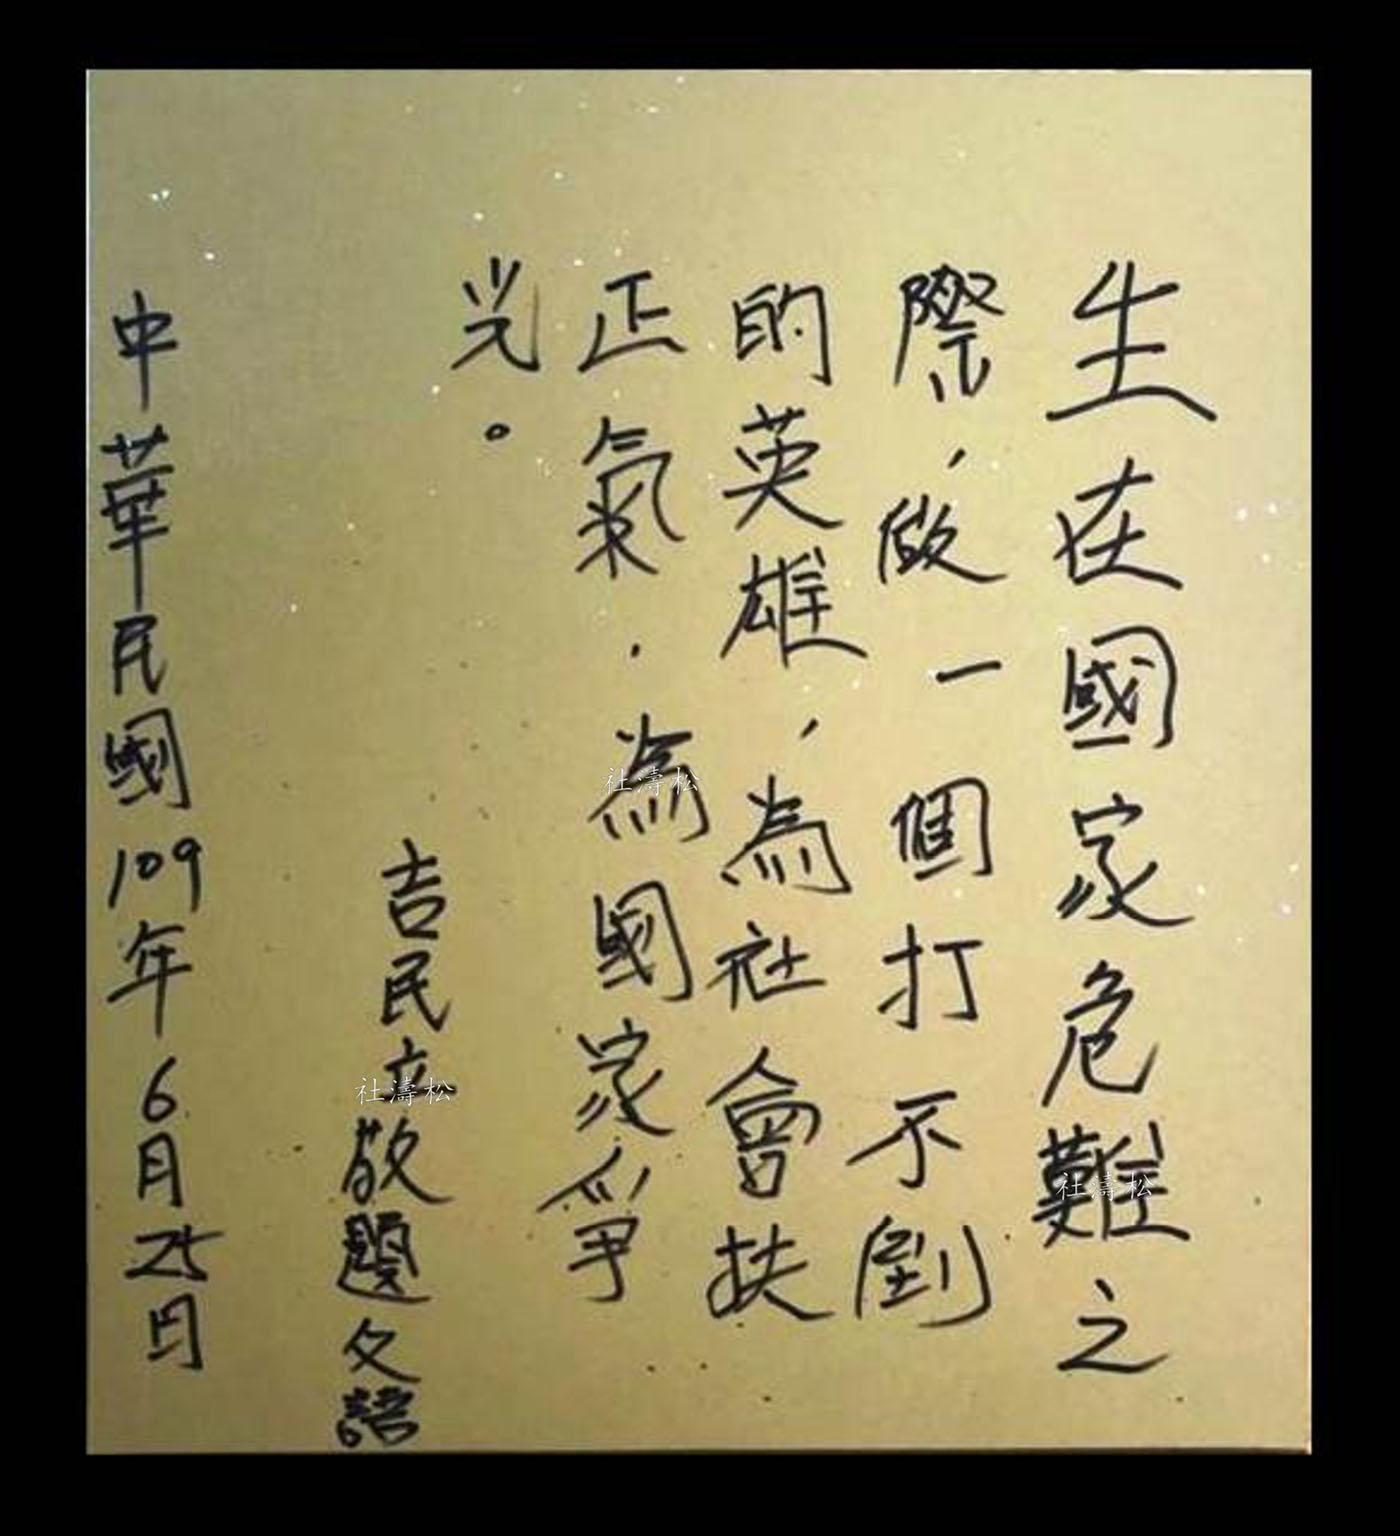 生在國家危難之
際，做一個打不倒
的英雄，為社會扶
正氣．為國家爭
光。
吉民立敬題文語
中華民國109年6月25日
社濤松
社濤松
社濤松